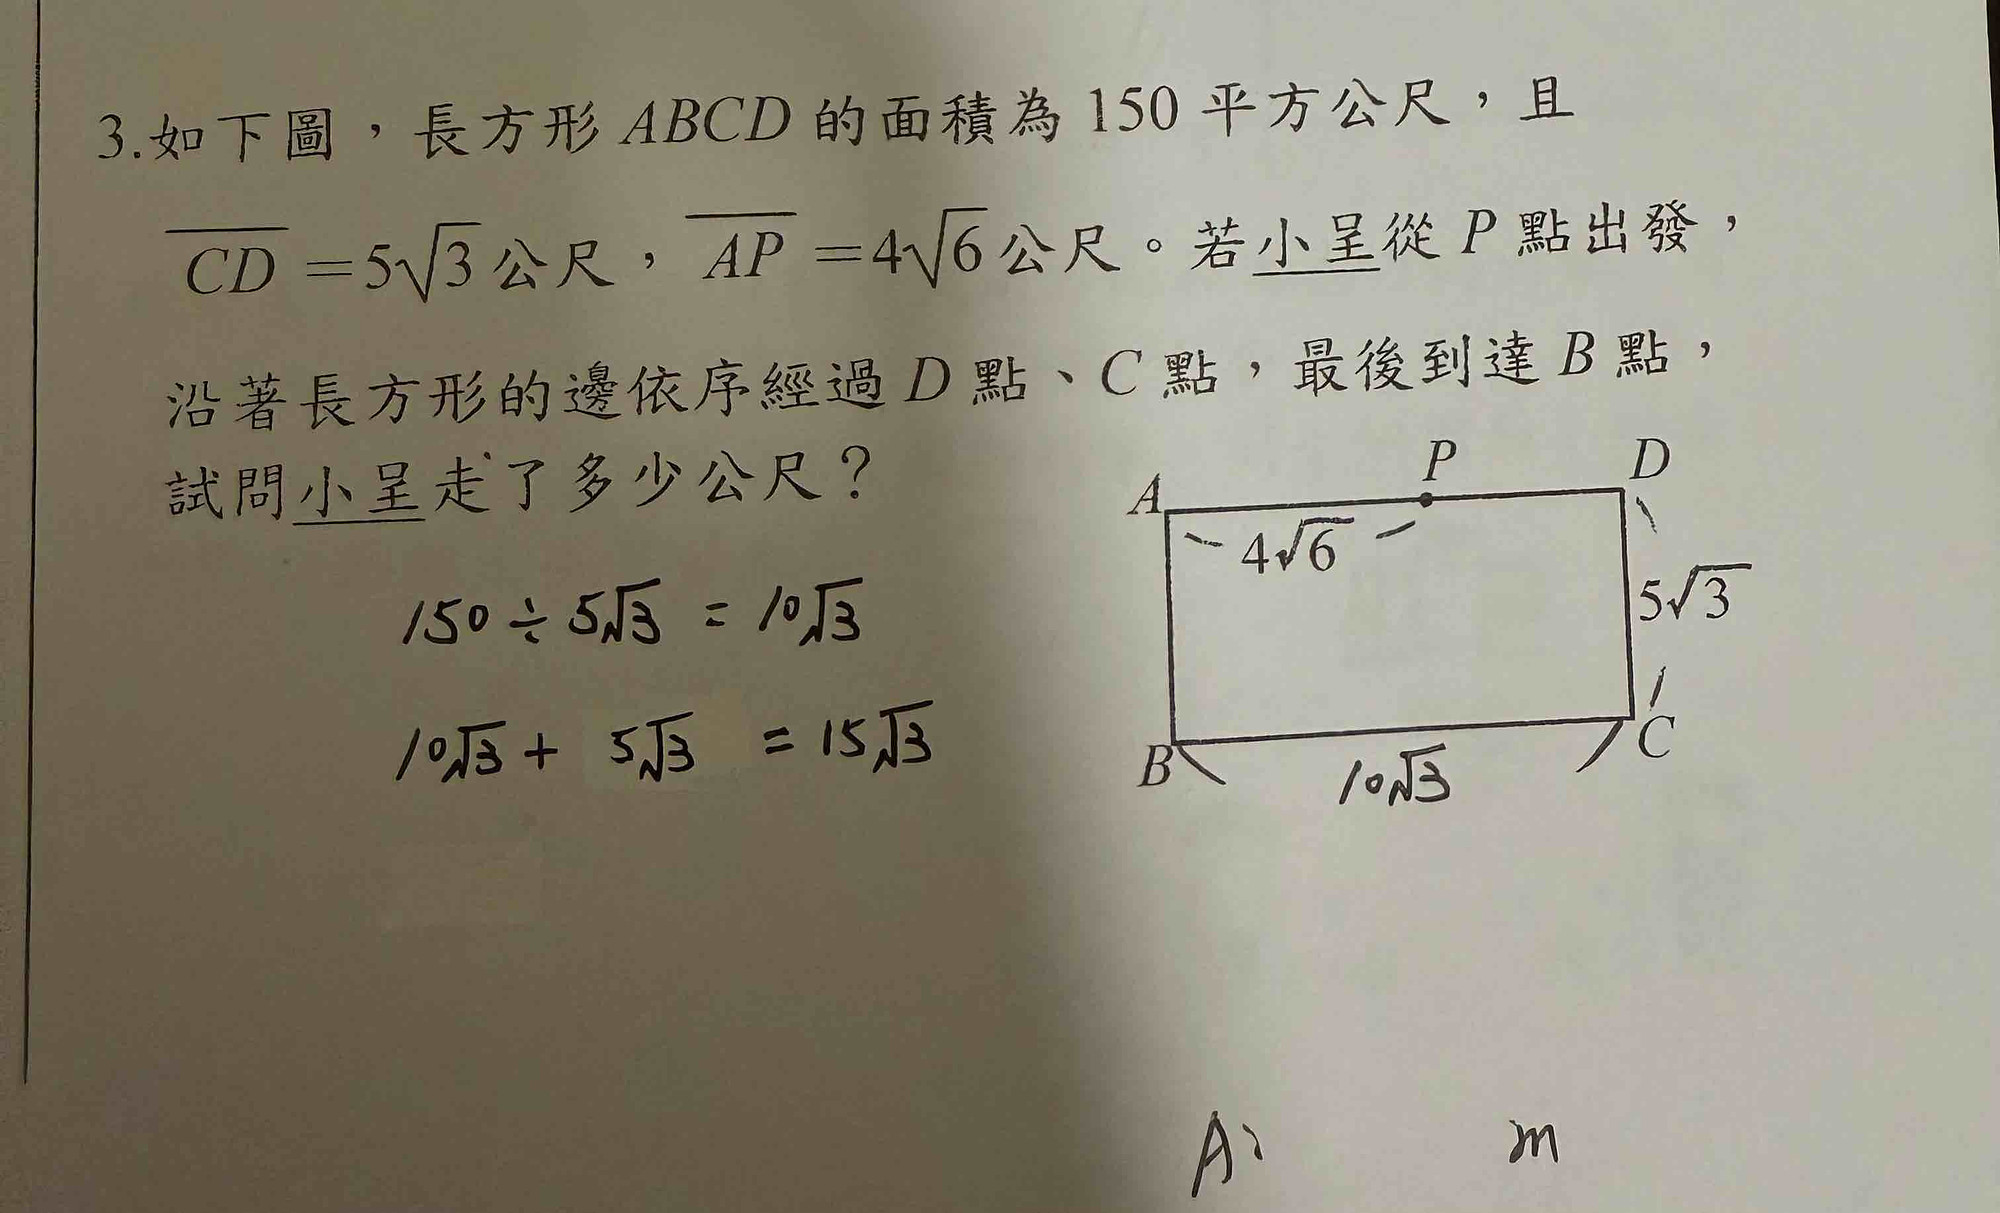 3.如下圖，長方形 ABCD 的面積為 150 平方公尺，且
CD＝5√3公尺，AP＝4√6公尺。若小呈從 P 點出發，
沿著長方形的邊依序經過 D 點、C 點，最後到達 B 點，
試問小呈走了多少公尺？
P D
A
4√6
150÷5√3 = 10√3
5√3
10√3 + 5√3 = 15√3
B C
10√3
A: m